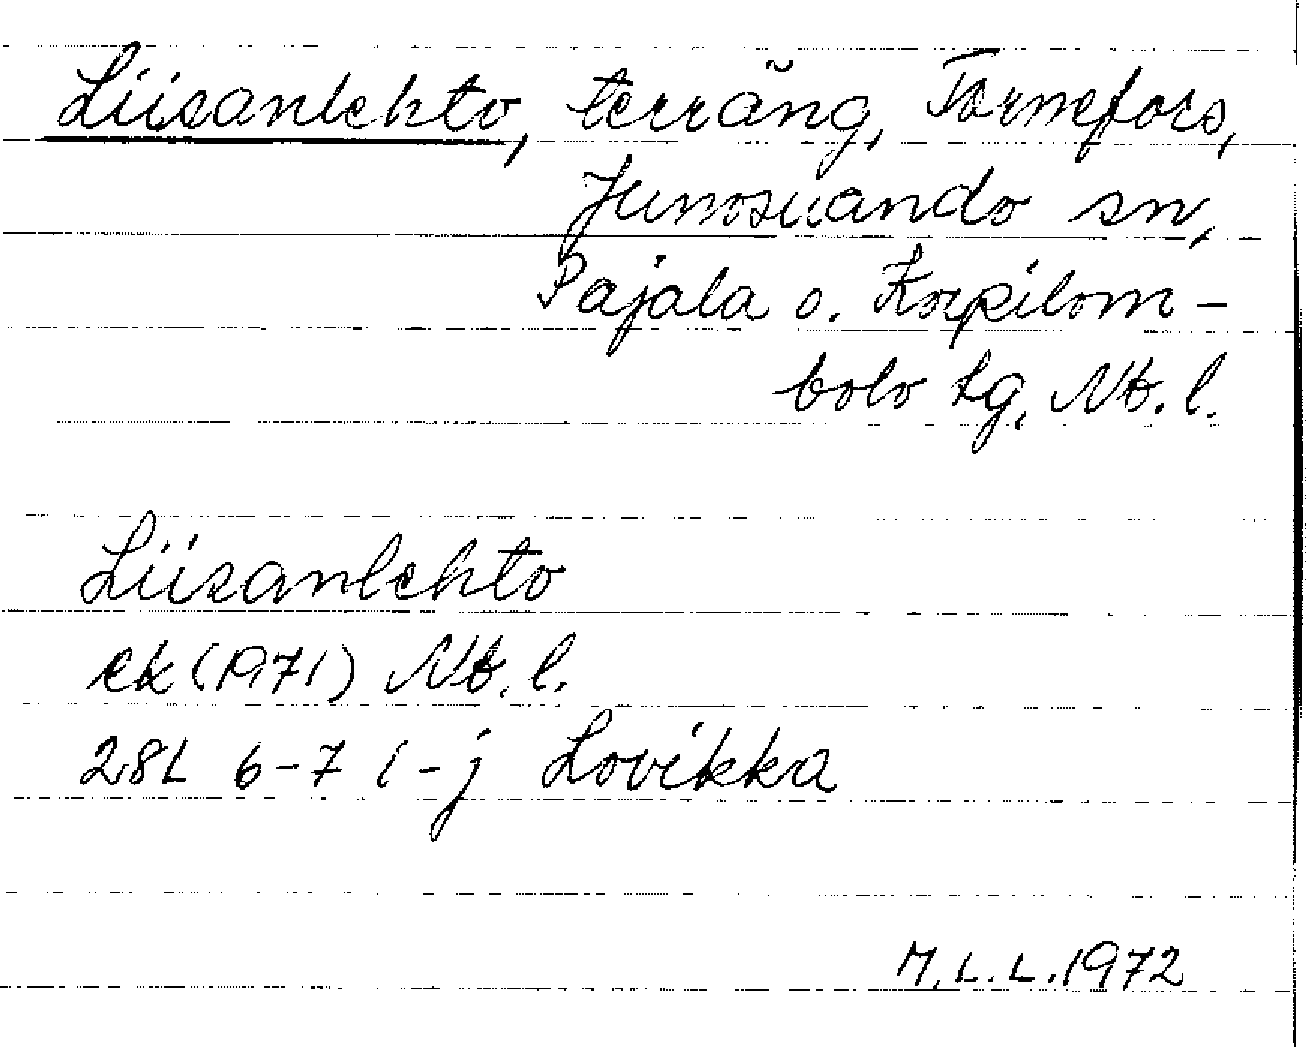 Liisanlehto, terräng, Tornefors,
Junosuando sn,
Pajala o. Korpilom-
bolo tg, Nb. l.
Liisanlehto
ek (1971) Nb. l.
28L 6-7 i-j Lovikka
M.L.L. 1972